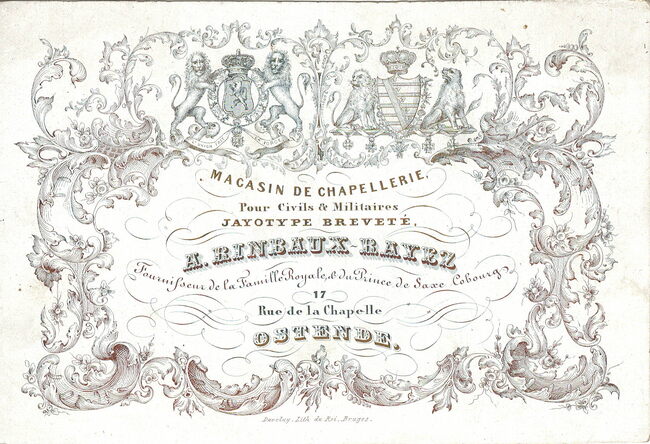 MAGASIN DE CHAPELLERIE,
Pour Civils & Militaires
JAYOTYPE BREVETÉ,
A. RINEAUX-RAYEZ
Fournisseur de la Famille Royale, & du Prince de Saxe Cobourg,
17
Rue de la Chapelle
OSTENDE.
Daveluy, Lith. du Roi, Bruges.